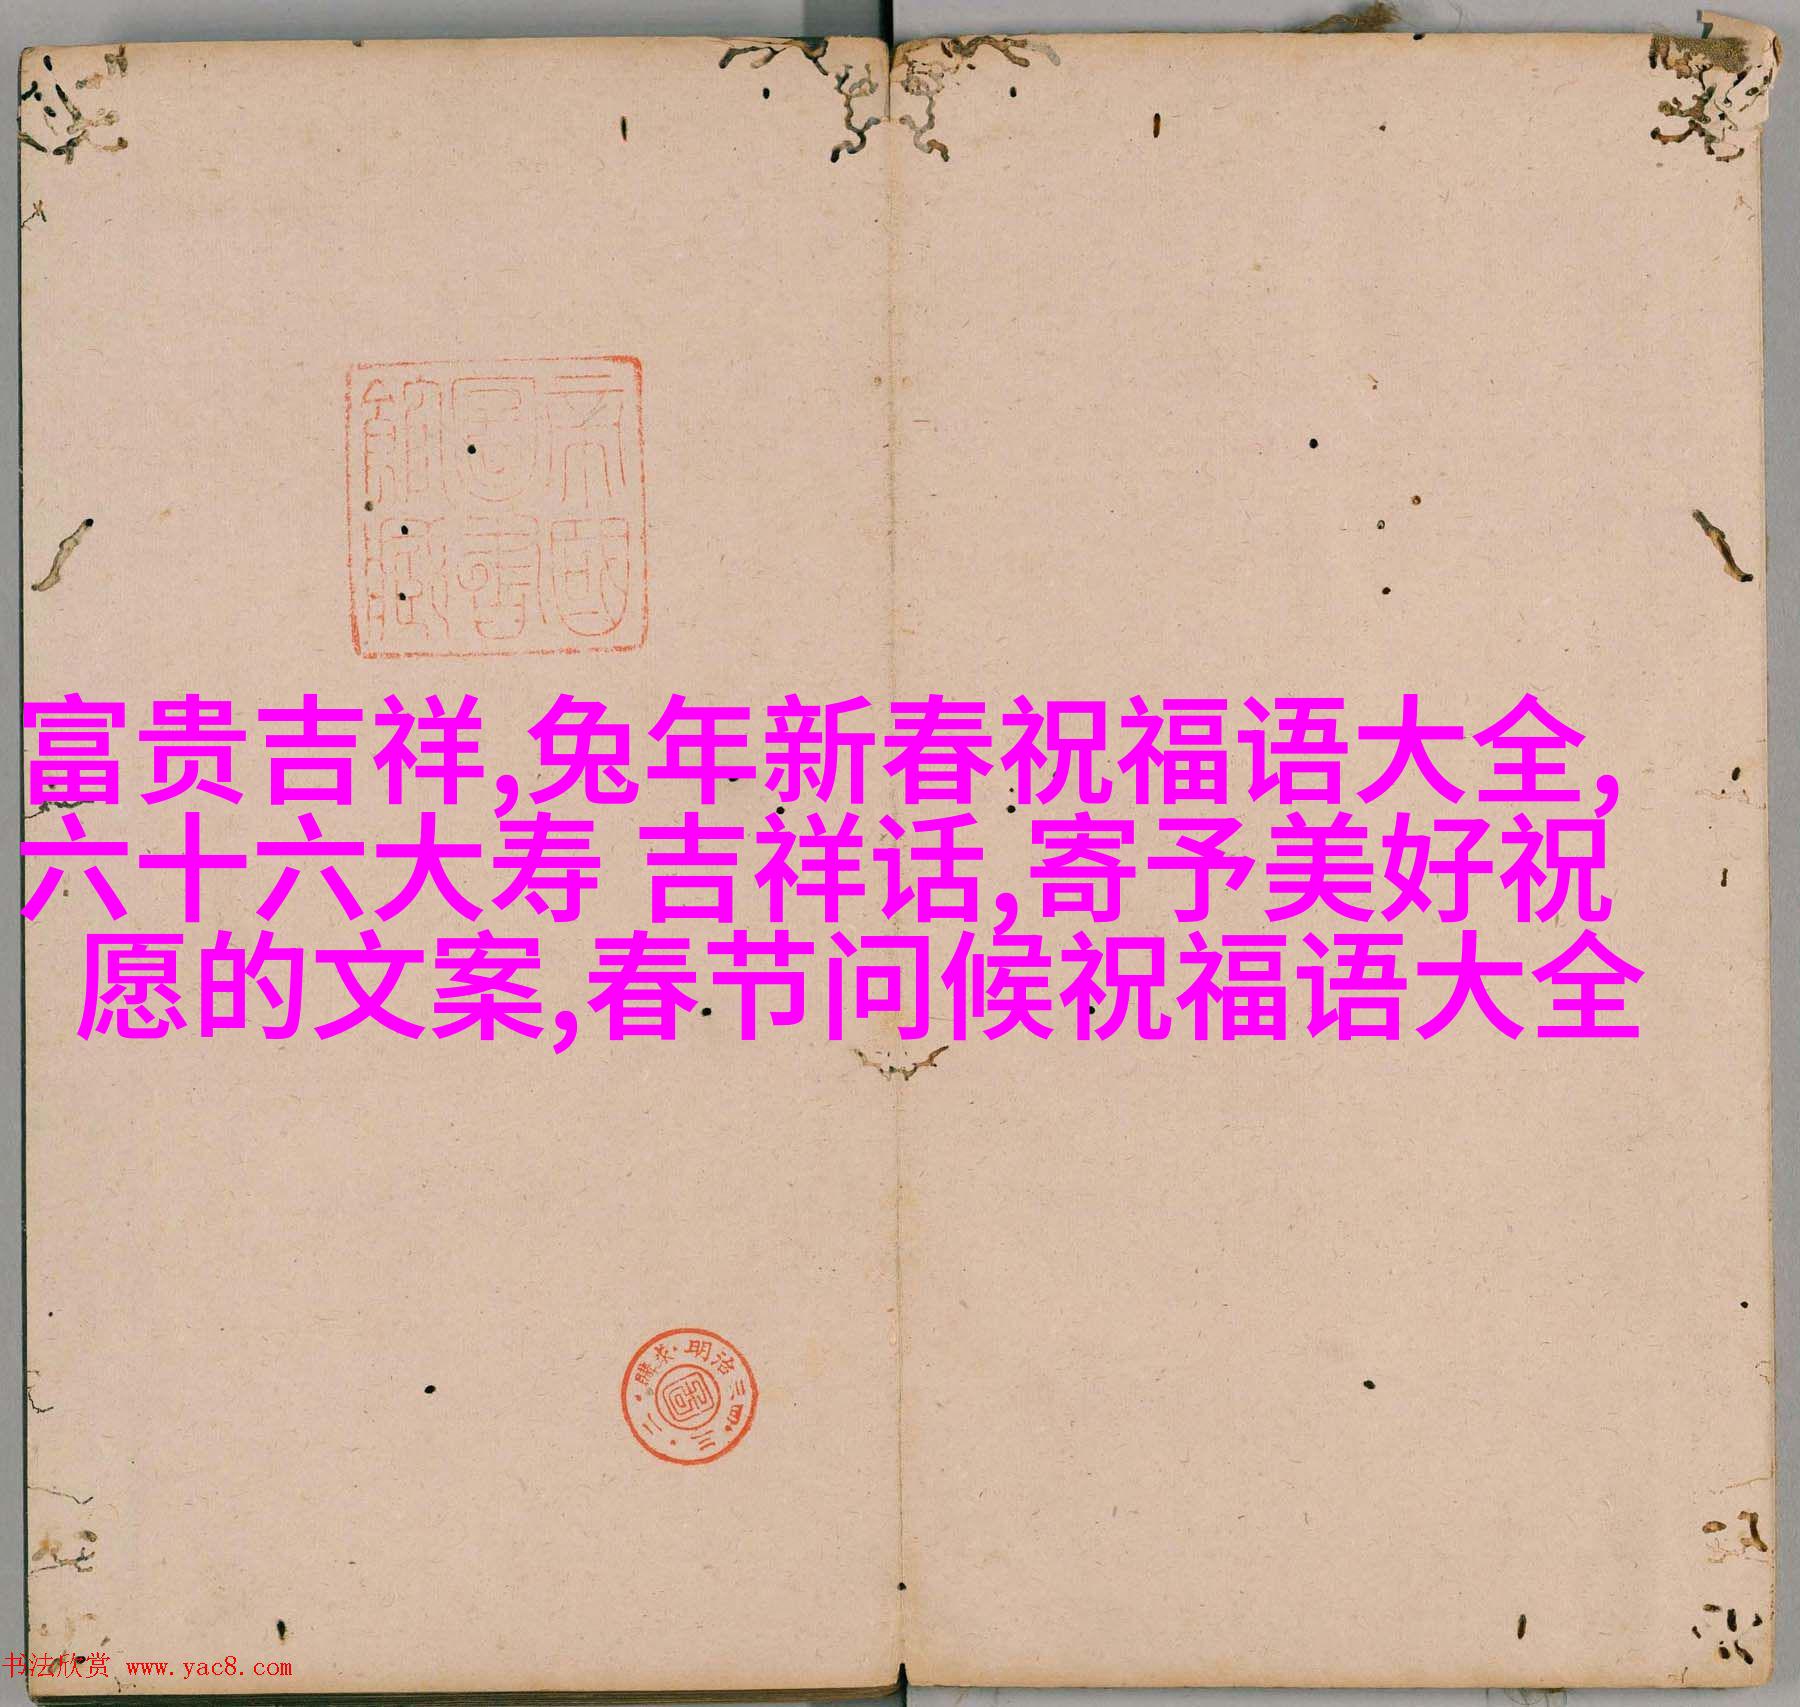 帝國圖
書館藏
富贵吉祥,兔年新春祝福语大全,
六十六大寿 吉祥话,寄予美好祝
愿的文案,春节问候祝福语大全
明治三四・三・二・購求・
书法欣赏 www.yac8.com